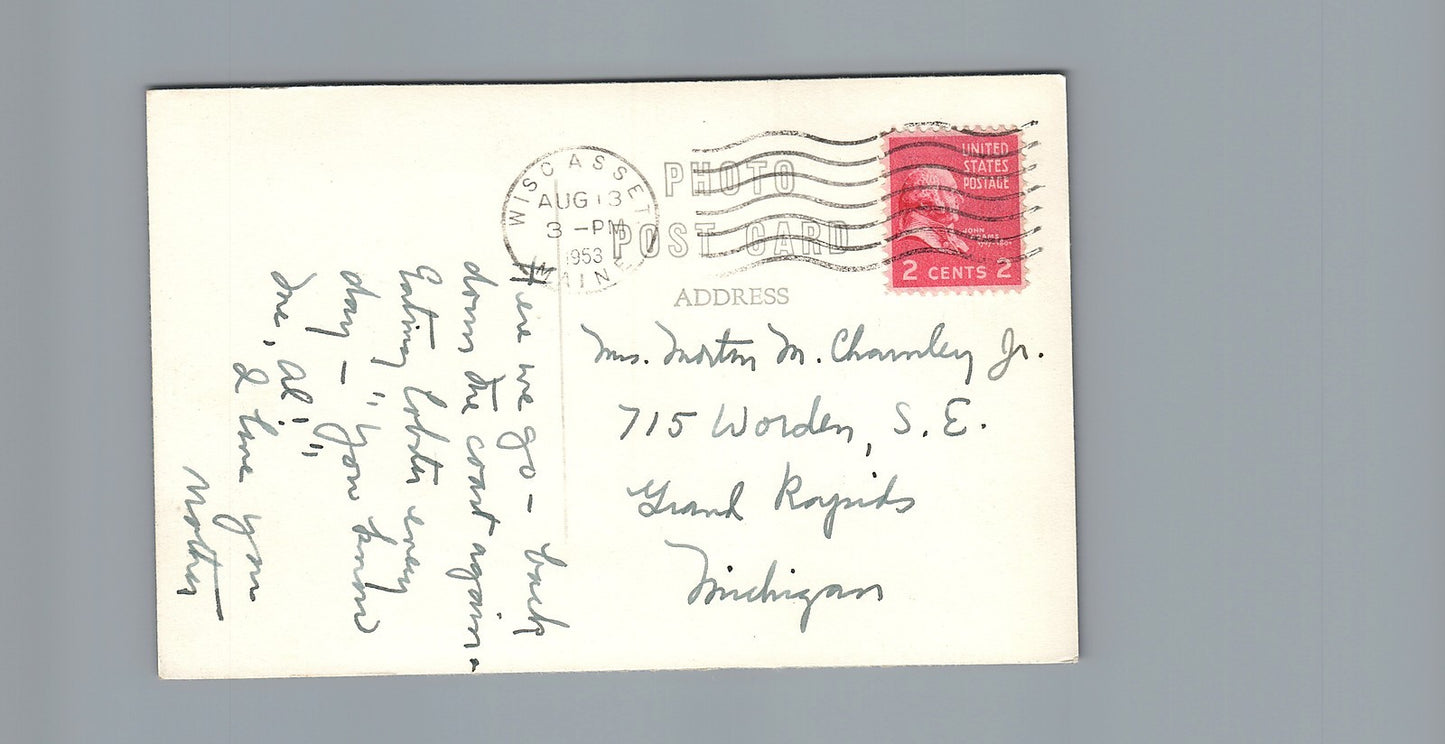 WISCASSET
AUG 13
3 -PM
1953
MAINE
PHOTO
POST CARD
UNITED
STATES
POSTAGE
JOHN
ADAMS
2 CENTS 2
ADDRESS
Mrs. Morton M. Chamley Jr.
715 Worden, S. E.
Grand Rapids
Michigan
Here we go - back
down the coast again -
Eating lobster every
day - "you know
me, al!"
I love you
Mother